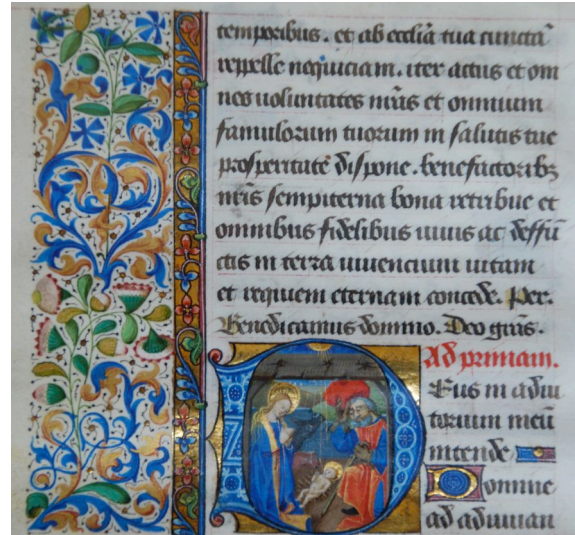 temporibus. et ab ecclīa tua cunctā
repelle nequiciam. iter actus et om
nes uoluntates nr̄as et omnium
famulorum tuorum in salutis tue
prosperitatē dispone. benefactoribꝫ
nr̄is sempiterna bona retribue et
omnibus fidelibus uiuis ac deffū
ctis in terra uiuencium uitam
et requiem eternam concede. Per.
Benedicamus domino. Deo grās.
Ad primam.
Deus in adiu
torium meū
intende
Domine
ad adiuuan